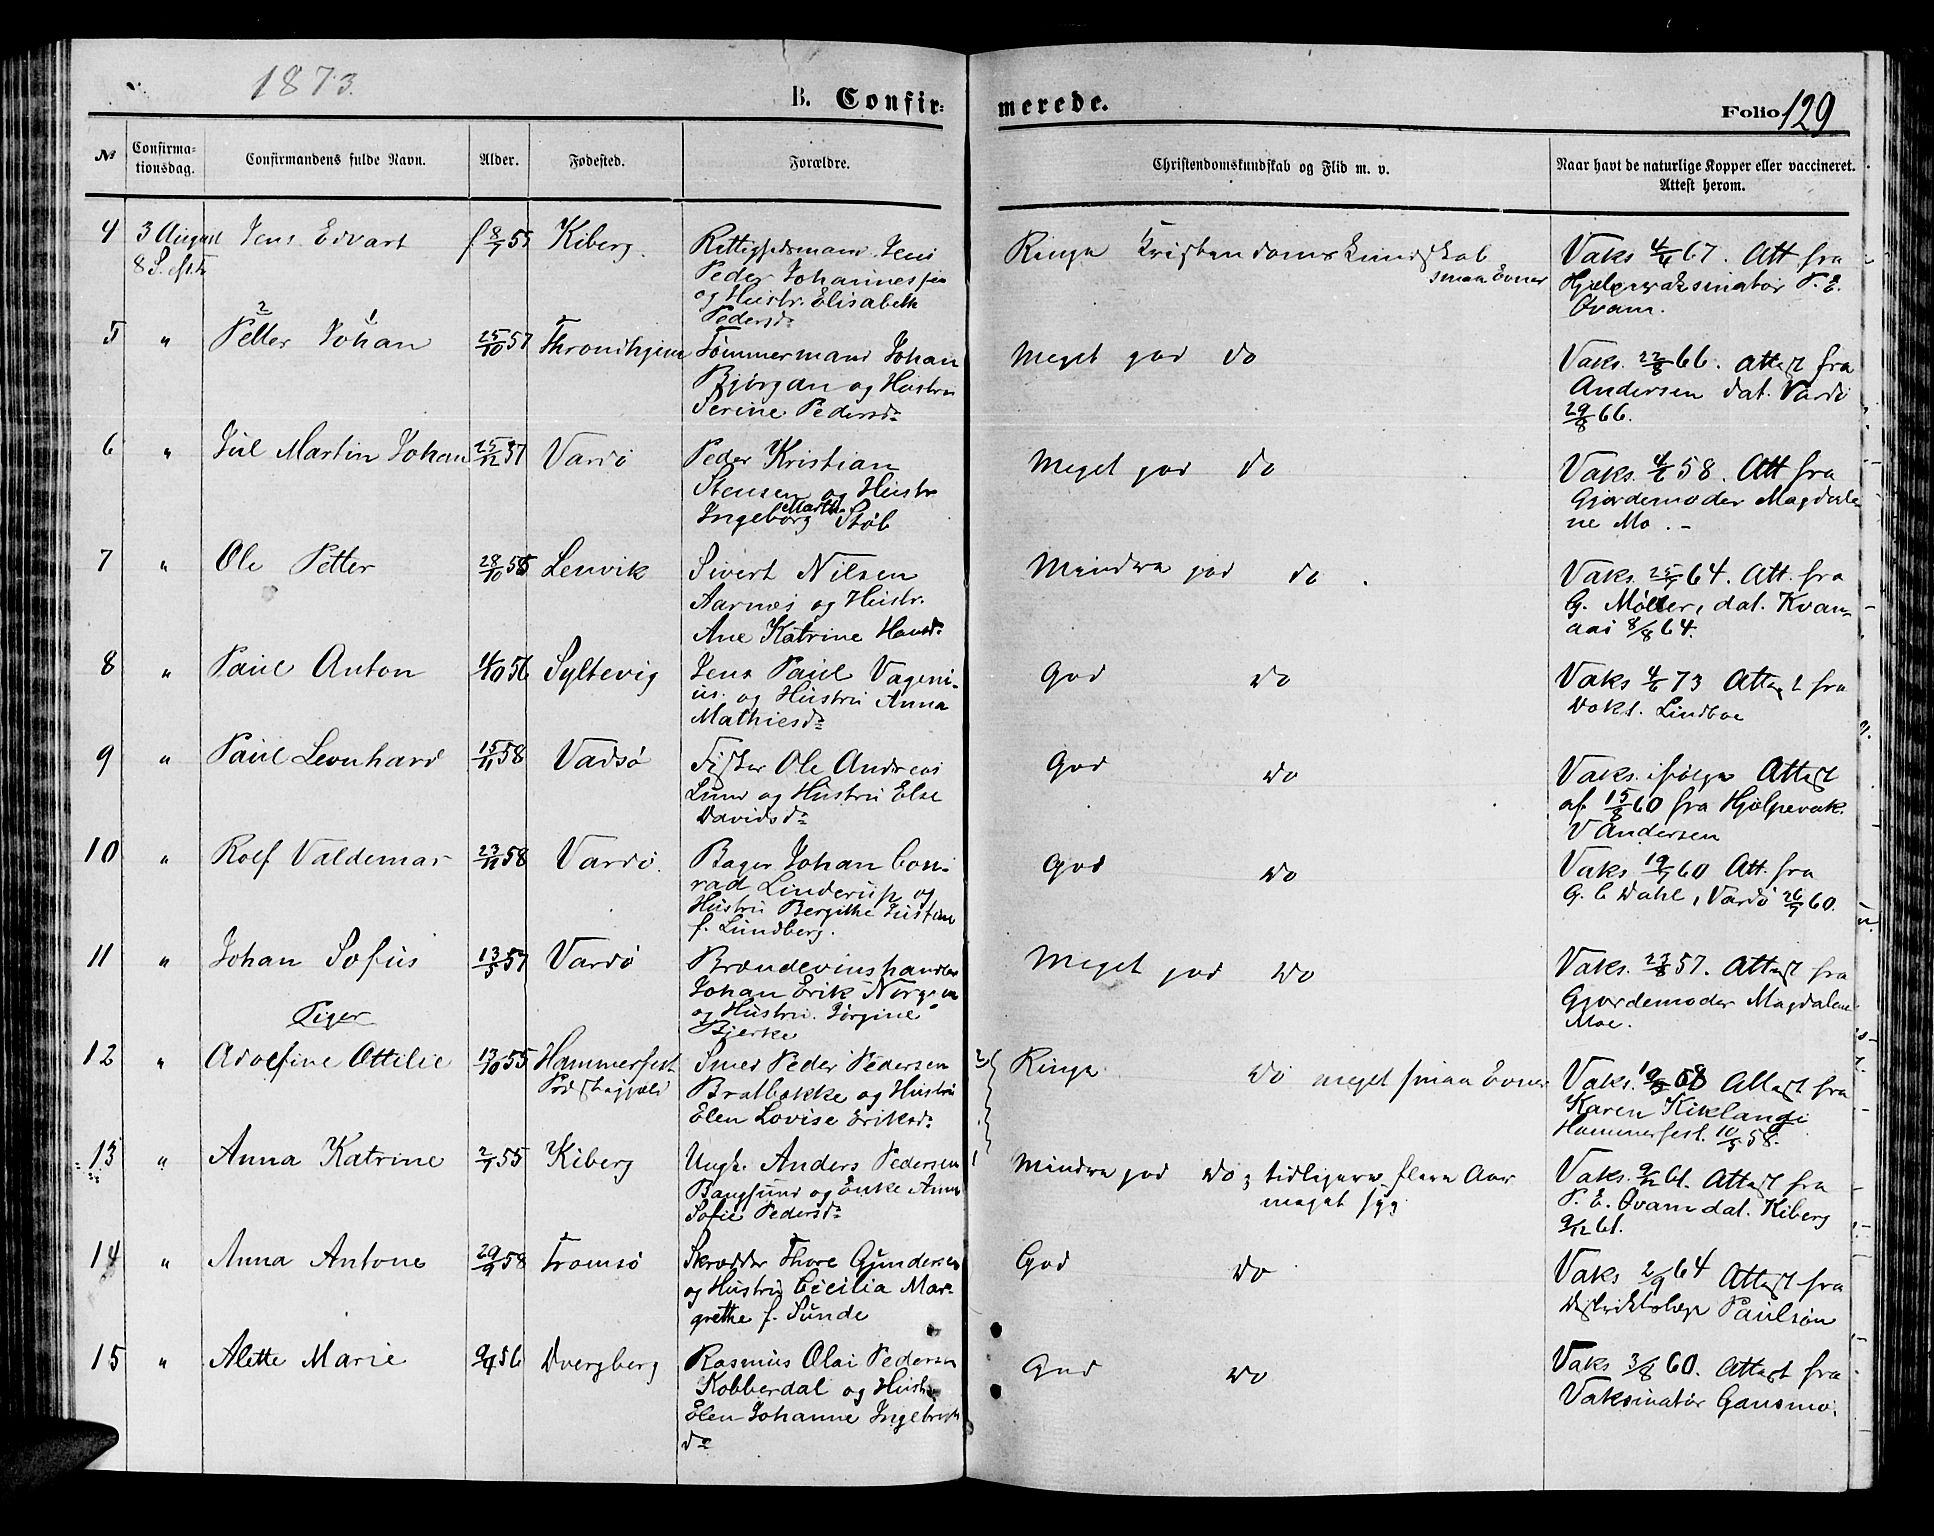 1873.
B. Confir-
merede.
Folio 129
№
Confirma-
tionsdag.
Confirmandens fulde Navn.
Alder.
Fødested.
Forældre.
Christendomskundskab og Flid m. v.
Naar havt de naturlige Kopper eller vaccineret.
Attest herom.
4 3 August Jens Edvart f 8/7 55 Kiberg. Rettighedsmand Jens
8 S. eftr
Peder Johannessen
og Hustr. Elisabeth
Pedersd:
Ringe Kristendoms Kundskab
smaa Evner
Vaks 4/6 67. Att fra
Hjelpevaksinatør P. E.
Qvam.
2 1
5 " Petter Johan 25/10 57 Throndhjem Tømmermand Johan
Bjørgan og Hustru
Serine Pedersd:
Meget god do
Vaks. 22/8 66. Attest fra
Andersen dat. Vardø
29/8 66.
6 " Jul Martin Johan 25/12 57 Vardø Peder Kristian
Stensen og Hustr
Marth.
Ingeborg Støb
Meget god do
Vaks. 4/6 58. Att fra
Gjordemoder Magdale-
ne Mo. -
7 " Ole Petter 28/10 55 Lenvik Sivert Nilsen
Aarnes og Hustr.
Ane Katrine Hansd:
Mindre god do.
Vaks. 25/7 64. Att. fra
G. Møller, dat. Kvan-
aas 8/8 64.
8 " Paul Anton 4/10 56 Syltevig Jens Paul Vageni-
us. og Hustru Anna
Mathiesd:
God do
Vaks 4/6 73 Attest fra
Dokt. Lindboe
9 " Paul Leonhard 15/11 58 Vadsø Fisker Ole Andreas
Lund og Hustru Else
Davidsd:
God do
Vaks. ifølge Attest
af 15/8 60 fra Hjelpevak.
V Andersen
10 " Rolf Valdemar 23/12 58 Vardø. Bager Johan Con-
rad Linderup og
Hustru Bergithe Justine
f. Lundberg.
God do
Vaks 19/7 60 Att. fra
G. C Dahl, Vardø 26/7 60.
11 " Johan Sofus 13/5 57 Vardø Brændevinshandler
Johan Erik Norgren
og Hustru. Jørgine
Bjerke
Meget god do
Vaks. 27/8 57. Attest fra
Gjordemoder Magdalene
Moe.
Piger
12 " Adolfine Ottilie 13/10 55 Hammerfest Smed Peder Pedersen
Præstegjeld
Bratbakke og Hustru
Elen Lovise Eriksd:
2 Ringe do meget smaa Evner
Vaks. 58 Attest fra
Karen
Hammerfest. 10/5 58.
13 " Anna Katrine 2/7 55 Kiberg Ungk. Anders Pedersen
Bangsund og Enke Anne
Sofie Pedersd:
1 Mindre god do; tidligere flere Aar
meget syg
Vaks. 9/12 61. Attest fra
P. E. Qvam dat. Kiberg
9/12 61.
14 " Anna Antone 29/9 58 Tromsø Skrædder Thore Gundersen
og Hustru Cicilia Mar-
grethe f. Sunde
God do
Vaks 2/9 64 Attest fra
Distriktslæge Paulson
15 " Alette Marie 9/4 56 Dverberg Rasmus Olai Pedersen
Kobberdal og Hustr
Elen Johanne Ingebrigt
d:
God do
Vaks 3/8 60. Attest fra
Vaksinatør Gansmo.